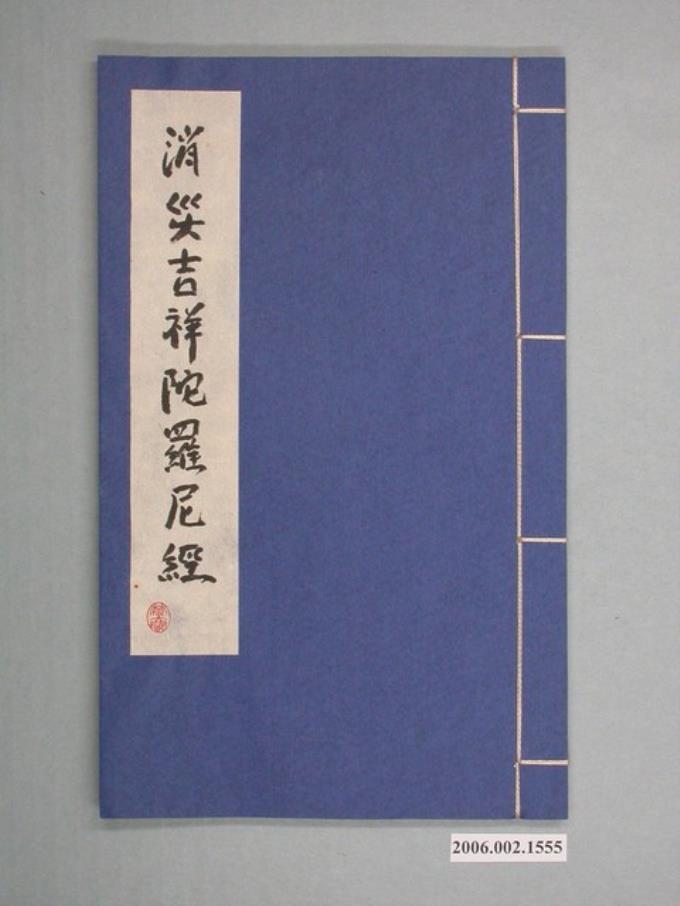 消災吉祥陀羅尼經
2006.002.1555